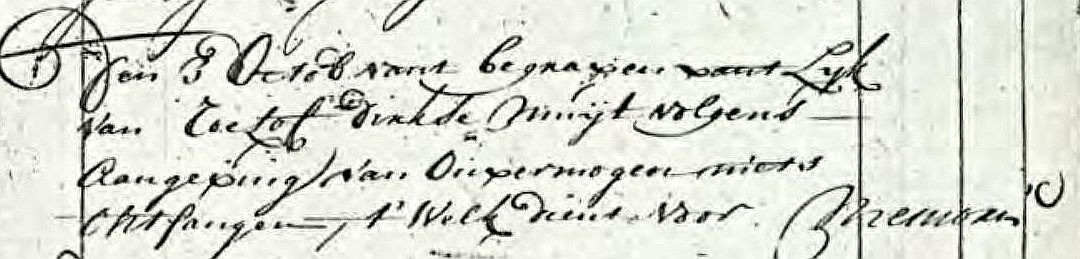 Den 3 Octob van't begraven van't Lyk
van Roelof Dirk de Muijt volgens
Aangeving van Onvermogen niets
Ontfangen, t' Welk dient voor Memorie